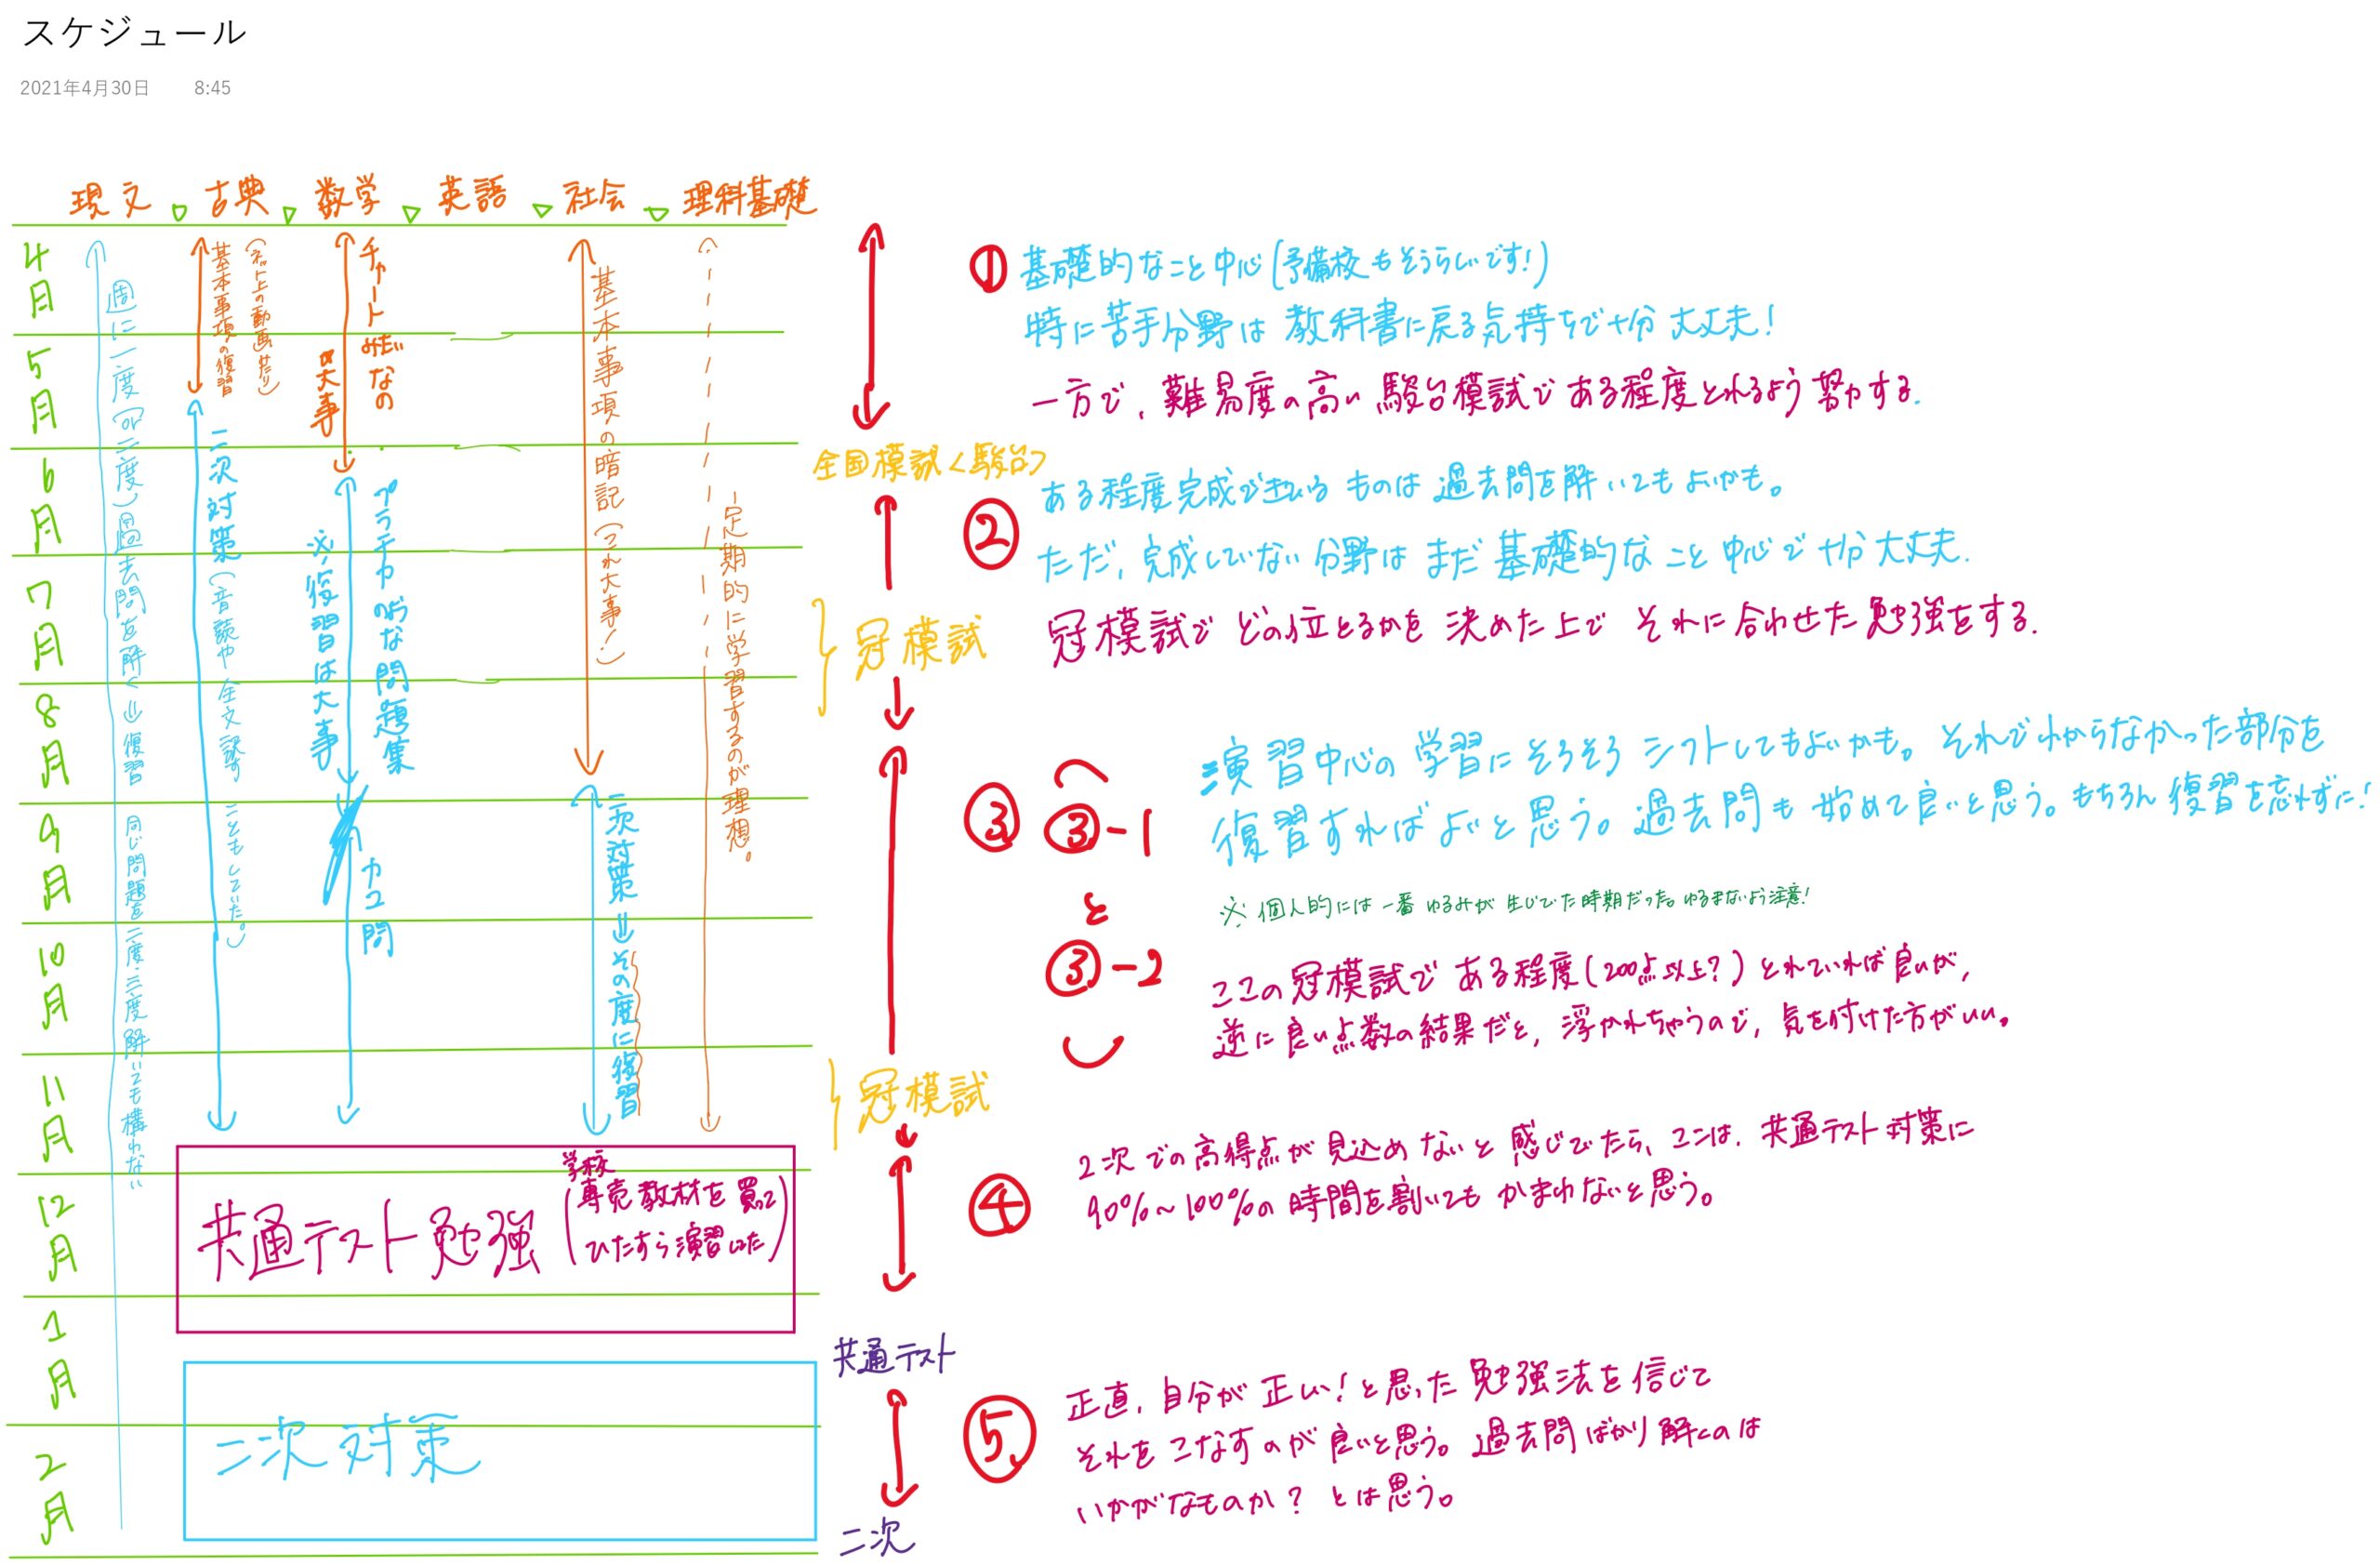 スケジュール
2021年4月30日 8:45
現文 古典 数学 英語 社会 理科基礎
4月
5月
6月
7月
8月
9月
10月
11月
12月
1月
2月
週に一度(or二度)過去問を解く⇒復習 同じ問題を二度・三度解いても構わない
基本事項の復習
(ネット上の動画見たり)
二次対策(音読や全文訳することもしていた。)
チャートみたいなの
大事
プラチカのような問題集
※復習は大事
カコ問
基本事項の暗記(これ大事!)
二次対策⇒その度に復習
定期的に学習するのが理想。
共通テスト勉強
学校
(専売教材を買って
ひたすら演習した)
二次対策
全国模試<駿台>
冠模試
冠模試
共通テスト
二次
① 基礎的なこと中心(予備校もそうらしいです!)
特に苦手分野は教科書に戻る気持ちで十分大丈夫!
一方で、難易度の高い駿台模試である程度とれるよう努力する.
② ある程度完成できているものは過去問を解いてもよいかも。
ただ、完成していない分野はまだ基礎的なこと中心で十分大丈夫.
冠模試でどの位とるかを決めた上でそれに合わせた勉強をする.
③ ③-1 と ③-2
演習中心の学習にそろそろシフトしてもよいかも。それでわからなかった部分を
復習すればよいと思う。過去問も始めて良いと思う。もちろん復習を忘れずに!
※個人的には一番ゆるみが生じていた時期だった。ゆるまないよう注意!
ここの冠模試である程度(200点以上?)とれていれば良いが,
逆に良い点数の結果だと,浮かれちゃうので,気を付けた方がいい。
④ 2次での高得点が見込めないと感じでたら、ココは、共通テスト対策に
90%~100%の時間を割いてもかまわないと思う。
⑤ 正直,自分が正しい!と思った勉強法を信じて
それをこなすのが良いと思う。過去問ばかり解くのは
いかがなものか?とは思う。